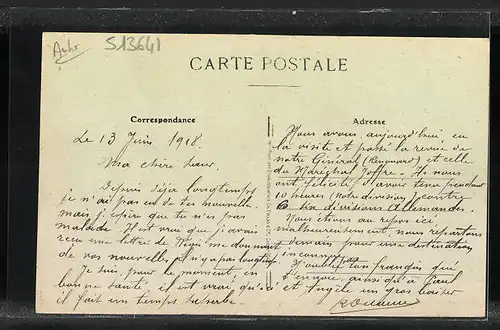 Auhr
S13641
CARTE POSTALE
Correspondance
Adresse
Le 13 Juin 1918.
Ma chère sœur.
Depuis déjà longtemps
je n'ai pas eut de tes nouvelles
mais j'espère que tu n'es pas
malade. Il est vrai que j'avais
reçu une lettre de me donnant
de vos nouvelles il n'y a pas longtemps
Je suis, pour le moment, en
bonne santé, il est vrai qu'ici
il fait un temps superbe.
Nous avons, aujourd'hui eu
la visite et passé la revue de
notre Général et celle
du Maréchal Joffre. Ils nous
ont félicité d'avoir tenu pendant
10 heures (Notre division) contre
6 divisions Allemandes.
Nous étions au repos ici
malheureusement, nous repartons
demain pour une destination
inconnue.
N'oublie ton français que
t'envoie, ainsi qu'à Paul
et Angèle un gros baiser